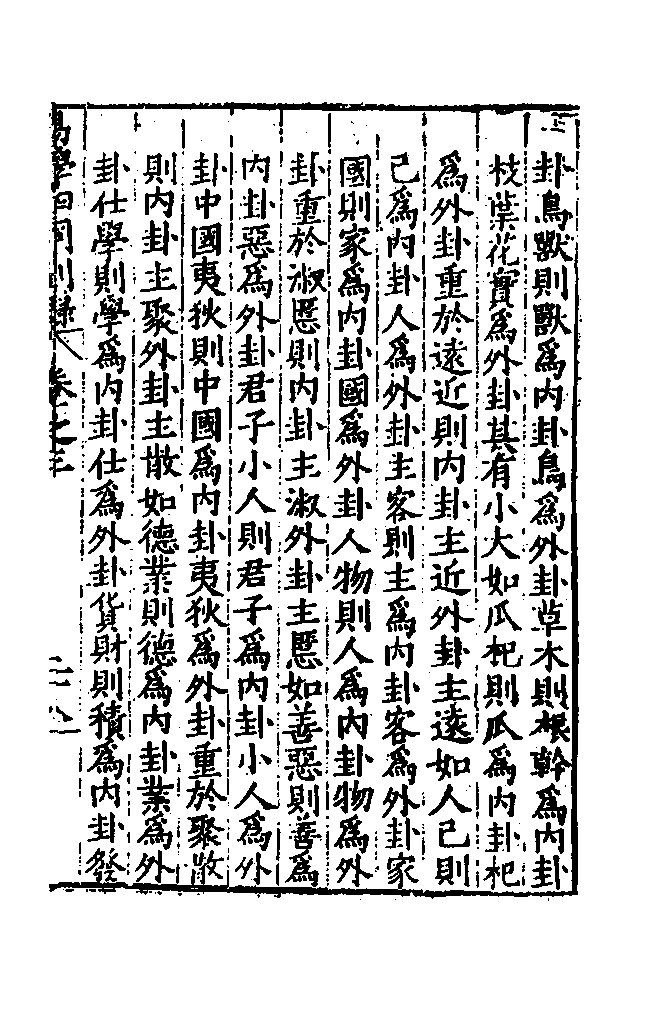 卦鳥獸則獸爲内卦鳥爲外卦草木則根幹爲内卦
枝葉花實爲外卦其有小大如瓜杞則瓜爲内卦杞
爲外卦重於遠近則内卦主近外卦主遠如人己則
己爲内卦人爲外卦主客則主爲内卦客爲外卦家
國則家爲内卦國爲外卦人物則人爲内卦物爲外
卦重於淑慝則内卦主淑外卦主慝如善惡則善爲
内卦惡爲外卦君子小人則君子爲内卦小人爲外
卦中國夷狄則中國爲内卦夷狄爲外卦重於聚散
則内卦主聚外卦主散如德業則德爲内卦業爲外
卦仕學則學爲内卦仕爲外卦貨財則積爲内卦發
卷之三
二十八